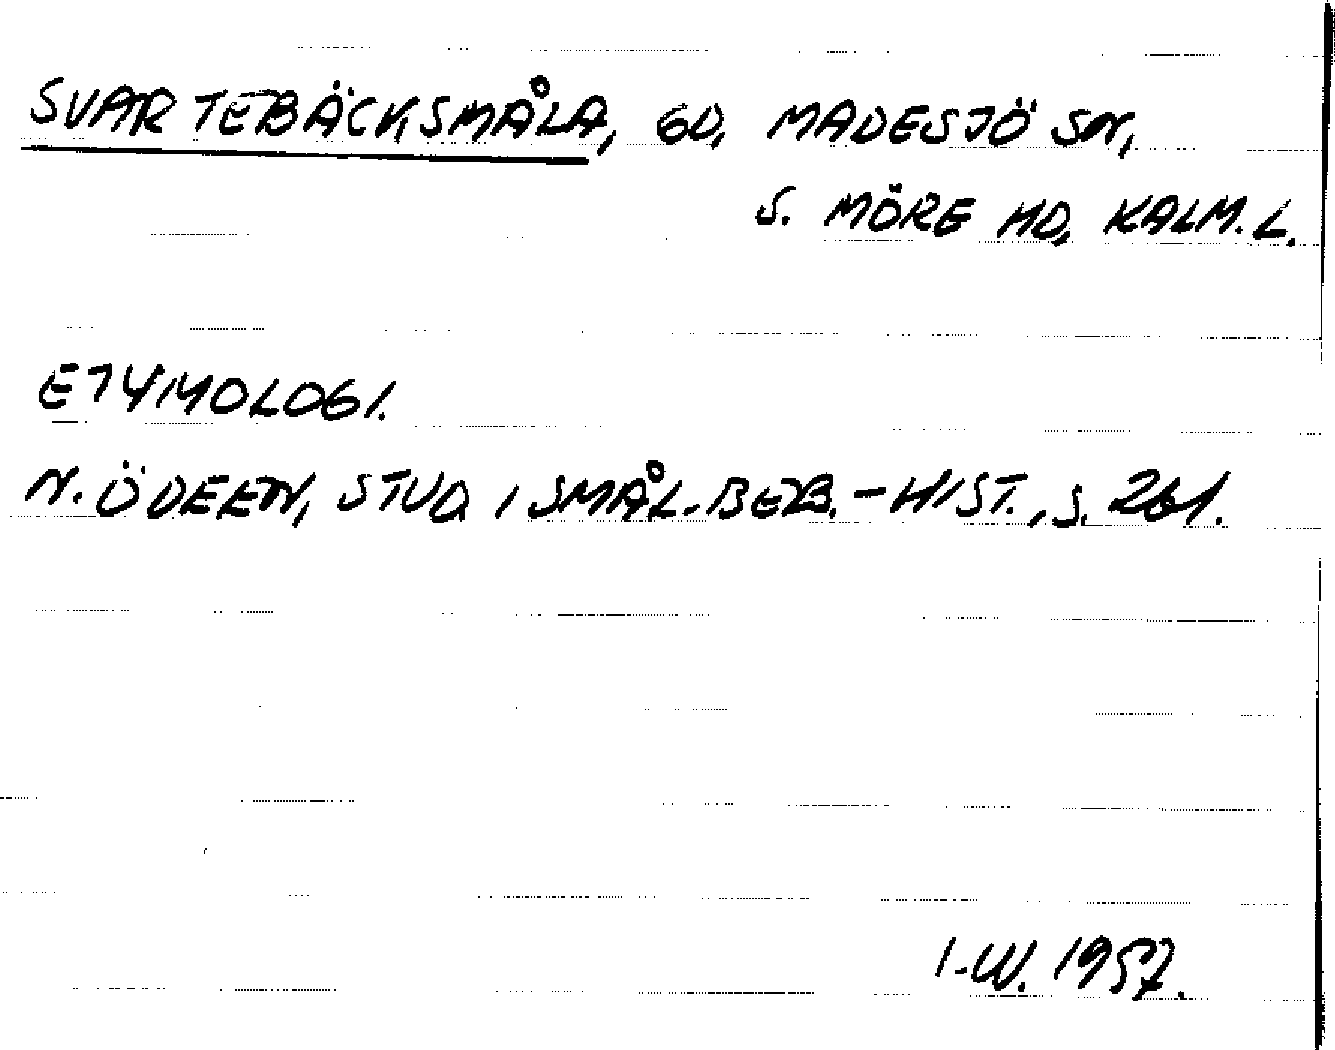 SVARTEBÄCKSMÅLA, GD, MADESJÖ SN,
S. MÖRE HD, KALM. L.
ETYMOLOGI.
N. ÖDEEN, STUD. I SMÅL. BEB.-HIST., S. 261.
I-W. 1957.